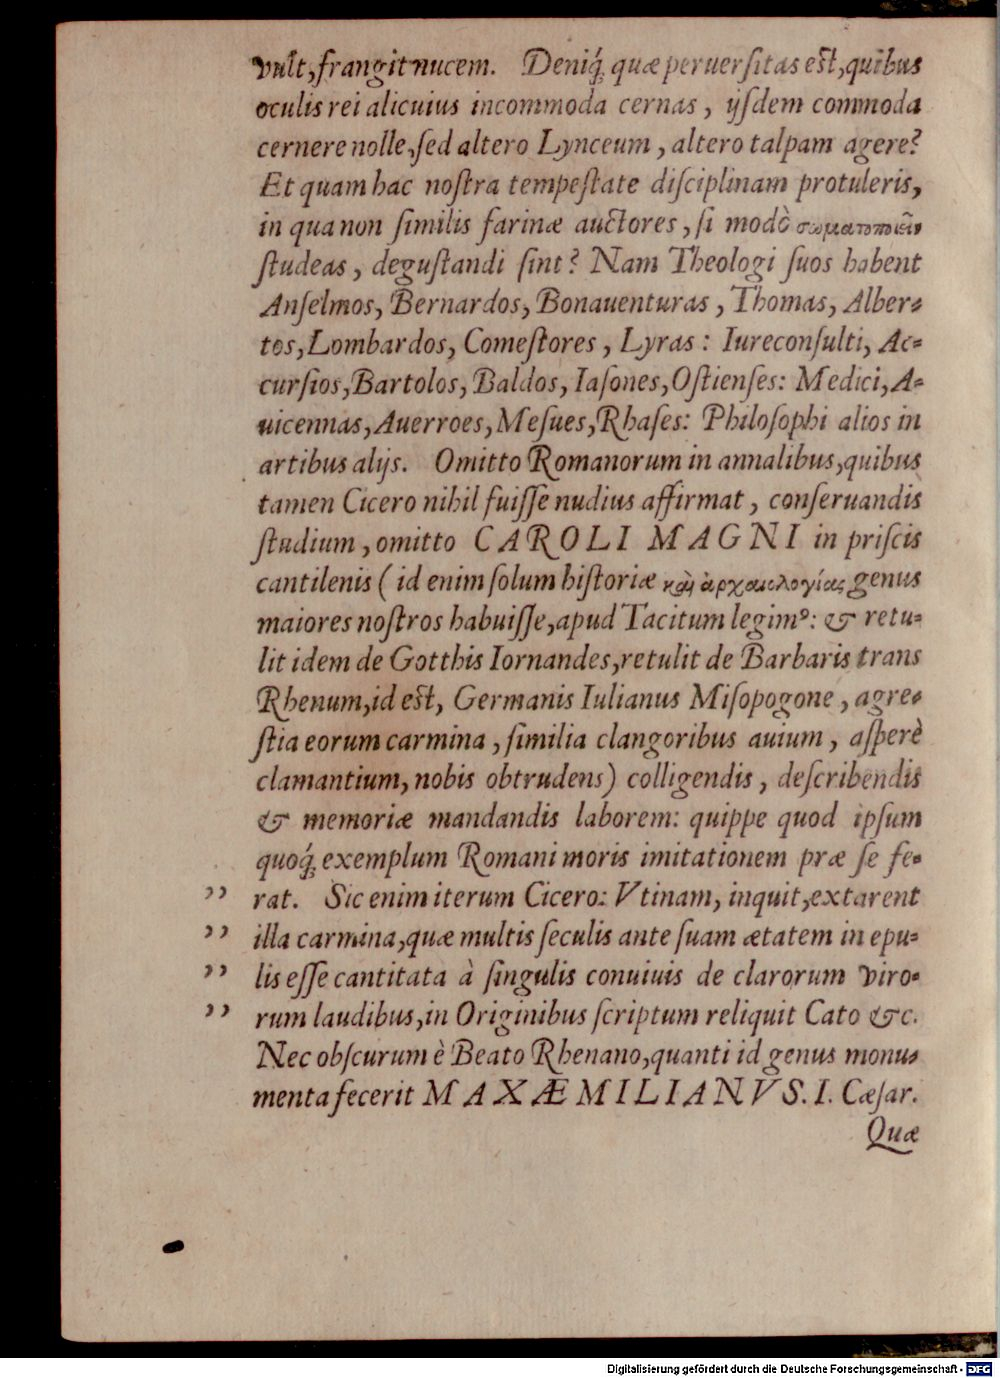 vult, frangit nucem. Deniq́; quæ peruersitas est, quibus
oculis rei alicuius incommoda cernas, ijsdem commoda
cernere nolle, sed altero Lynceum, altero talpam agere?
Et quam hac nostra tempestate disciplinam protuleris,
in qua non similis farinæ auctores, si modò σωματοποιεῖν
studeas, degustandi sint? Nam Theologi suos habent
Anselmos, Bernardos, Bonauenturas, Thomas, Alber-
tos, Lombardos, Comestores, Lyras: Iureconsulti, Ac-
cursios, Bartolos, Baldos, Iasones, Ostienses: Medici, A-
uicennas, Auerroes, Mesues, Rhases: Philosophi alios in
artibus alijs. Omitto Romanorum in annalibus, quibus
tamen Cicero nihil fuisse nudius affirmat, conseruandis
studium, omitto CAROLI MAGNI in priscis
cantilenis (id enim solum historiæ καὶ ἀρχαιολογίας genus
maiores nostros habuisse, apud Tacitum legimꝰ: & retu-
lit idem de Gotthis Iornandes, retulit de Barbaris trans
Rhenum, id est, Germanis Iulianus Misopogone, agre-
stia eorum carmina, similia clangoribus auium, asperè
clamantium, nobis obtrudens) colligendis, describendis
& memoriæ mandandis laborem: quippe quod ipsum
quoq́; exemplum Romani moris imitationem præ se fe-
,, rat. Sic enim iterum Cicero: Vtinam, inquit, extarent
,, illa carmina, quæ multis seculis ante suam ætatem in epu-
,, lis esse cantitata à singulis conuiuis de clarorum viro-
,, rum laudibus, in Originibus scriptum reliquit Cato &c.
Nec obscurum è Beato Rhenano, quanti id genus monu-
menta fecerit MAXÆMILIANVS. I. Cæsar.
Quæ
Digitalisierung gefördert durch die Deutsche Forschungsgemeinschaft - DFG